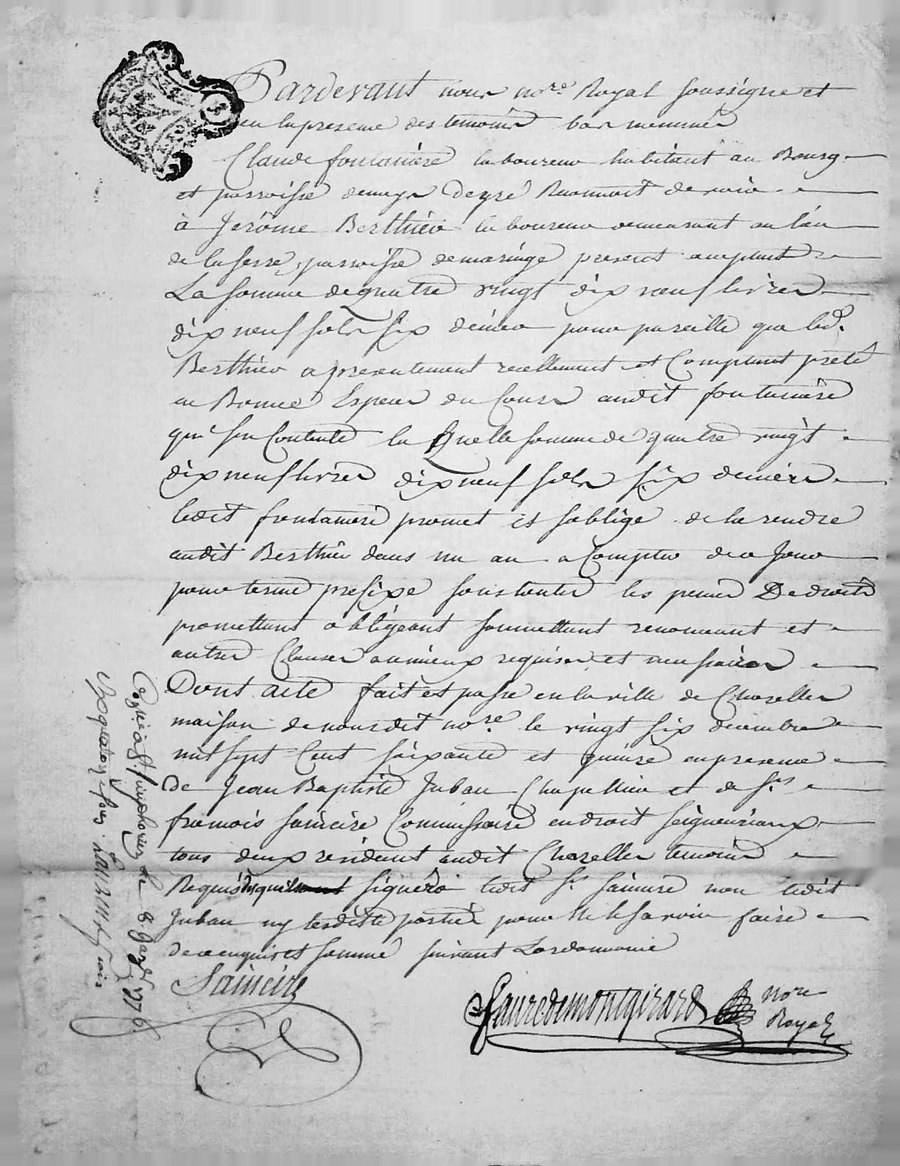 Pardevant nous no.re Royal soussigne et
en la presence des temoins bas nommés
Claude fontaniere laboureur habitant au Bourg
et parroisse de degré Reconnoit devoir
à Jerôme Berthéo laboureur demeurant au lieu
de la serre, parroisse de maringe present acceptant
La somme de quatre vingt dix neuf livres
dix neuf sols six deniers pour pareille que led.
Berthéo a presentement reellement et Comptant preté
en Bonne Espece du Cours audit fontaniere
qui s'en Contente la quelle somme de quatre vingt
dix neuf livres dix neuf sols six deniers
ledit fontaniere promet et s'oblige de la rendre
audit Berthéo dans un an a Compter de ce Jour
pour terme prefixe sous toutes les peines De droits
promettant obligeant soumettant renonceant et
autres Clauses au mieux requises et necessaires
Dont acte fait et passe en la ville de Chazelles
maison de nousdit no.re le vingt six decembre
mil sept Cent soixante et quinze en presence
de Jean Baptiste Juban Chapellier et de S.r
francois sauciré Commissaire en droit seigneuriaux
tous deux resident audit Chazelles temoins
Requis signéro ledit S.r non ledit
Juban ny lesdittes parties pour ne le savoir faire
de ce enquis et sommé suivant Lordonnance
Fauredemontgirard nore
Royal
le 8 janv. 1776